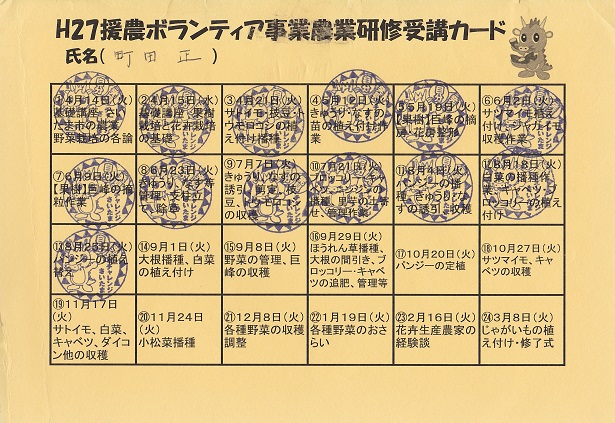 H27援農ボランティア事業農業研修受講カード
氏名( 町田 正 )
①4月14日(火)
基礎講座、さい
たま市の農業、
野菜栽培の各論
②4月15日(水)
基礎講座、果樹
栽培と花卉栽培
の基礎
③4月21日(火)
サトイモ、枝豆、ト
ウモロコシの植
え付け播種
④5月12日(火)
きゅうり・なすの
苗の植え付け作
業
⑤5月19日(火)
【果樹】巨峰の摘
房、花房整形
⑥6月2日(火)
サツマイモ植え
付け、ジャガイモ
収穫作業
⑦6月9日(火)
【果樹】巨峰の摘
粒作業
⑧6月23日(火)
きゅうり、なす等
管理、支柱立
て、除草
⑨7月7日(火)
きゅうり、なすの
誘引、剪定、枝
豆、トウモロコシの
収穫
⑩7月21日(火)
ブロッコリー・キャ
ベツ、ニンジンの
播種、里芋の土寄
せ、管理作業
⑪8月4日(火)
パンジーの播
種、きゅうり・な
すの誘引、収穫
⑫8月18日(火)
白菜の播種作
業、キャベツ・ブ
ロッコリーの植え
付け
⑬8月25日(火)
パンジーの植え
替え
⑭9月1日(火)
大根播種、白菜
の植え付け
⑮9月8日(火)
野菜の管理、巨
峰の収穫
⑯9月29日(火)
ほうれん草播種、
大根の間引き、ブ
ロッコリー・キャベ
ツの追肥、管理等
⑰10月20日(火)
パンジーの定植
⑱10月27日(火)
サツマイモ、キャ
ベツの収穫
⑲11月17日
(火)
サトイモ、白菜、
キャベツ、ダイコ
ン他の収穫
⑳11月24日
(火)
小松菜播種
㉑12月8日(火)
各種野菜の収穫
調整
㉒1月19日(火)
各種野菜のおさ
らい
㉓2月16日(火)
花卉生産農家の
経験談
㉔3月8日(火)
じゃがいもの植
え付け・修了式